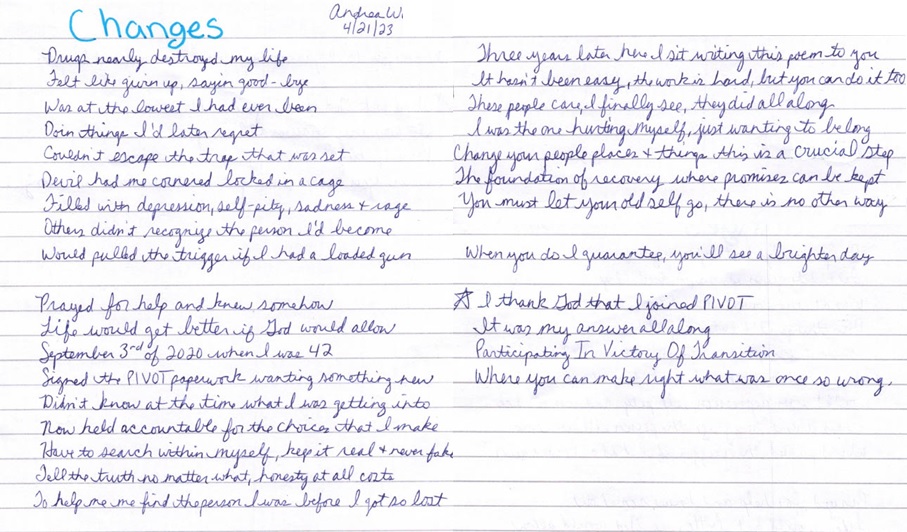 Changes
Andrea W.
4/21/23
Drugs nearly destroyed my life
Felt like givin up, sayin good-bye
Was at the lowest I had ever been
Doin things I'd later regret
Couldn't escape the trap that was set
Devil had me cornered locked in a cage
Filled with depression, self-pity, sadness + rage
Others didn't recognize the person I'd become
Would pulled the trigger if I had a loaded gun
Prayed for help and knew somehow
Life would get better if God would allow
September 3rd of 2020 when I was 42
Signed the PIVOT paperwork wanting something new
Didn't know at the time what I was getting into
Now held accountable for the choices that I make
Have to search within myself, keep it real + never fake
Tell the truth no matter what, honesty at all costs
To help me me find the person I was before I got so lost
Three years later here I sit writing this poem to you
It hasn't been easy, the work is hard, but you can do it too
These people care, I finally see, they did all along
I was the one hurting myself, just wanting to belong
Change your people places + things this is a crucial step
The foundation of recovery where promises can be kept
You must let your old self go, there is no other way
When you do I guarantee, you'll see a brighter day
☆ I thank God that I joined PIVOT
It was my answer all along
Participating In Victory Of Transition
Where you can make right what was once so wrong.